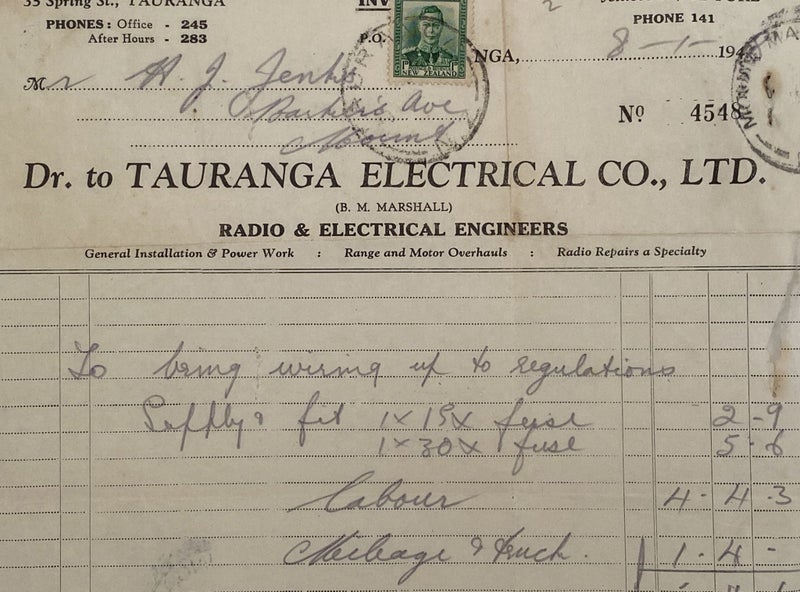 35 Spring St., TAURANGA
INV
PHONE 141
PHONES: Office - 245
After Hours - 283
P.O.
NEW ZEALAND
NGA, 8-1-194
Mr H. J.
Ave
Mount
Nº 4548
Dr. to TAURANGA ELECTRICAL CO., LTD.
(B. M. MARSHALL)
RADIO & ELECTRICAL ENGINEERS
General Installation & Power Work : Range and Motor Overhauls : Radio Repairs a Specialty
To bring wiring up to regulations
Supply & fit 1x15x fuse 2-9
1x30x fuse 5-6
Labour 4-4-3
Mileage & truck. 1-4-